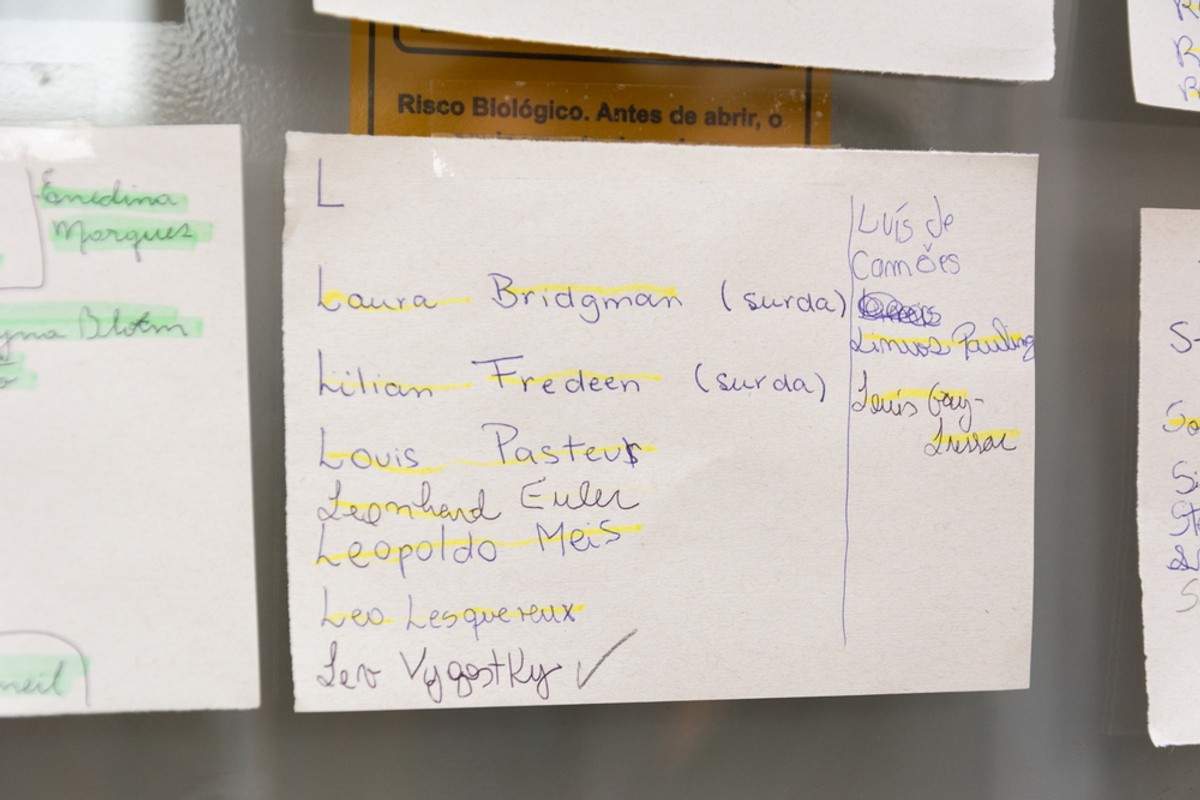 Risco Biológico. Antes de abrir, o
Enedina
Marques
L
Laura Bridgman (surda)
Lilian Fredeen (surda)
Louis Pasteur
Leonhard Euler
Leopoldo Meis
Leo Lesquereux
Lev Vygostky
Luís de
Camões
Linuos Pauling
Louis Gay-
Lussac